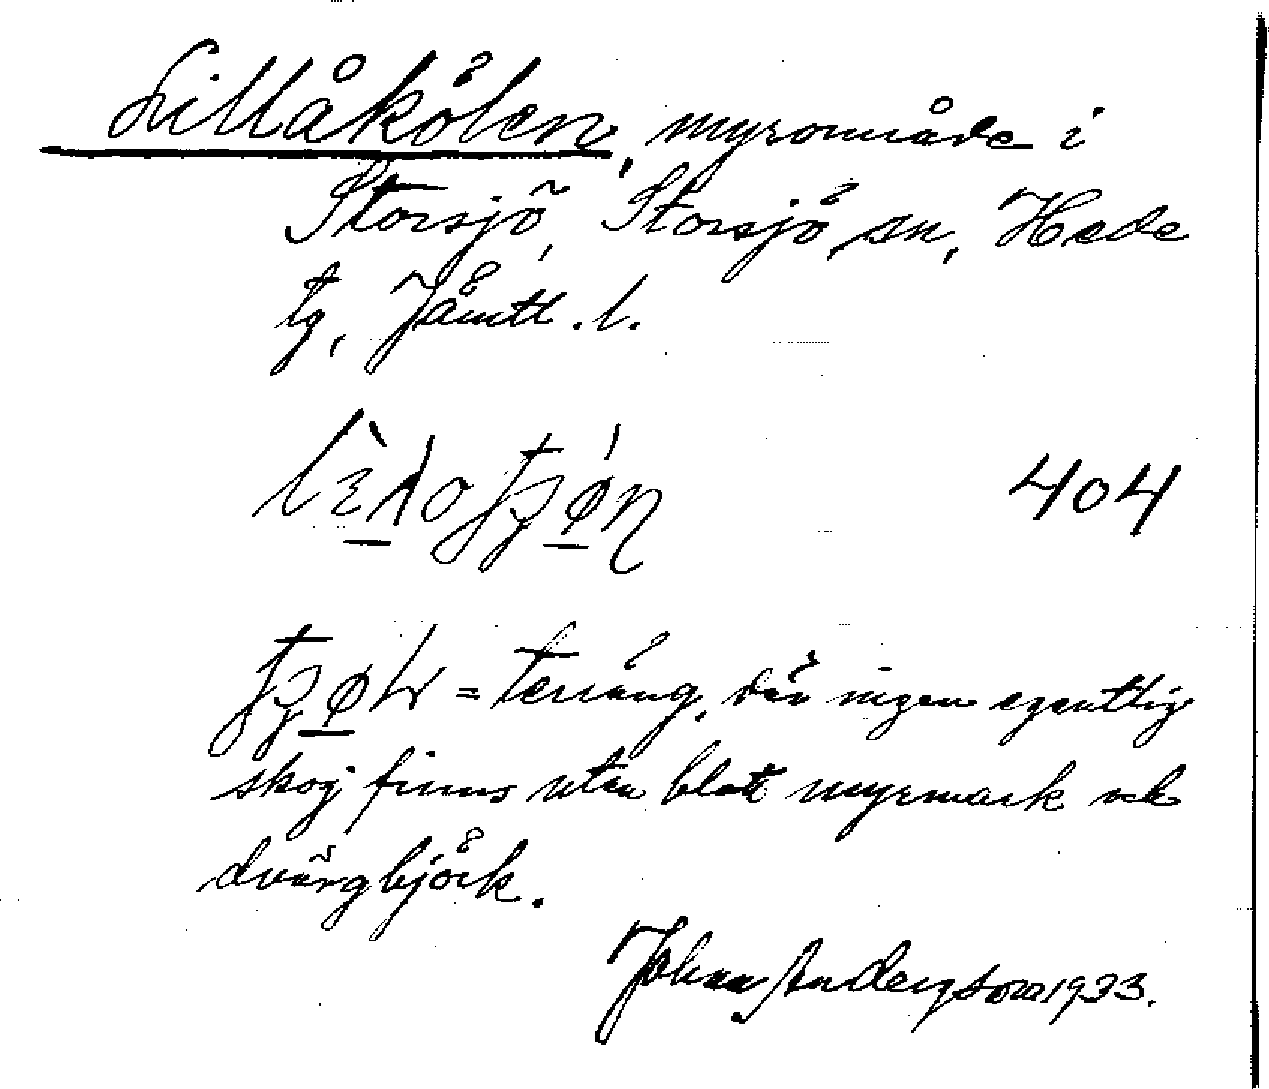 Lillåkölen, myrområde i
Storsjö, Storsjö sn, Hede
tg, Jämtl. l.
404
= terräng, där ingen egentlig
skog finns utan blott myrmark och
dvärgbjörk.
Johan Anderson 1933.